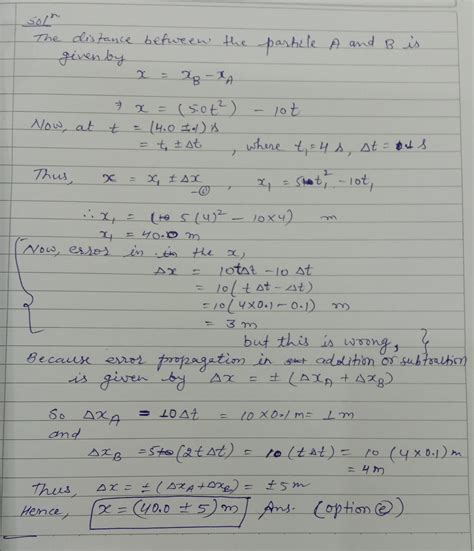 Solⁿ
The distance between the particle A and B is
given by
x = x_B - x_A
⇒ x = (5.0t²) - 10t
Now, at t = (4.0 ± .1) s
= t₁ ± Δt , where t₁ = 4 s, Δt = 0.1 s
Thus, x = x₁ ± Δx , x₁ = 5t₁² - 10t₁
∴ x₁ = (5(4)² - 10×4) m
x₁ = 40.0 m
Now, error in the x,
Δx = 10tΔt - 10 Δt
= 10(t Δt - Δt)
= 10(4×0.1 - 0.1) m
= 3 m
but this is wrong, }
Because error propagation in addition or subtraction
is given by Δx = ± (Δx_A + Δx_B)
So Δx_A = 10Δt = 10×0.1 m = 1 m
and
Δx_B = 5(2tΔt) = 10(tΔt) = 10 (4×0.1) m
= 4m
Thus, Δx = ±(Δx_A + Δx_B) = ±5m
Hence, x = (40.0 ± 5) m Ans. (option e)